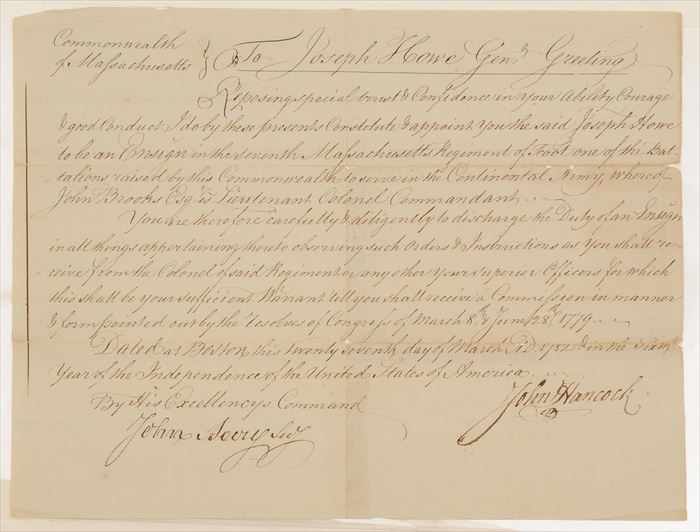 Commonwealth
of Massachusetts } To Joseph Howe Genᵗ Greeting
Reposing special trust & Confidence in your Ability Courage
& good Conduct I do by these presents Constitute & appoint You the said Joseph Howe
to be an Ensign in the seventh Massachusetts Regiment of Foot one of the Bat
talions raised by this Commonwealth to serve in the Continental Army, whereof
John Brooks Esqʳ is Lieutenant Colonel Commandant
You are therefore carefully & diligently to discharge the Duty of an Ensign
in all things appertaining thereto observing such Orders & Instructions as You shall re
ceive from the Colonel of said Regiment or any other your superior Officers for which
this shall be your sufficient Warrant till you shall receive a Commission in manner
& form pointed out by the Resolves of Congress of March 8ᵗʰ & June 28ᵗʰ 1779
Dated at Boston this twenty seventh day of March & in the sixth
Year of the Independence of the United States of America
By His Excellencys Command
John Hancock
John Avery Secʸ